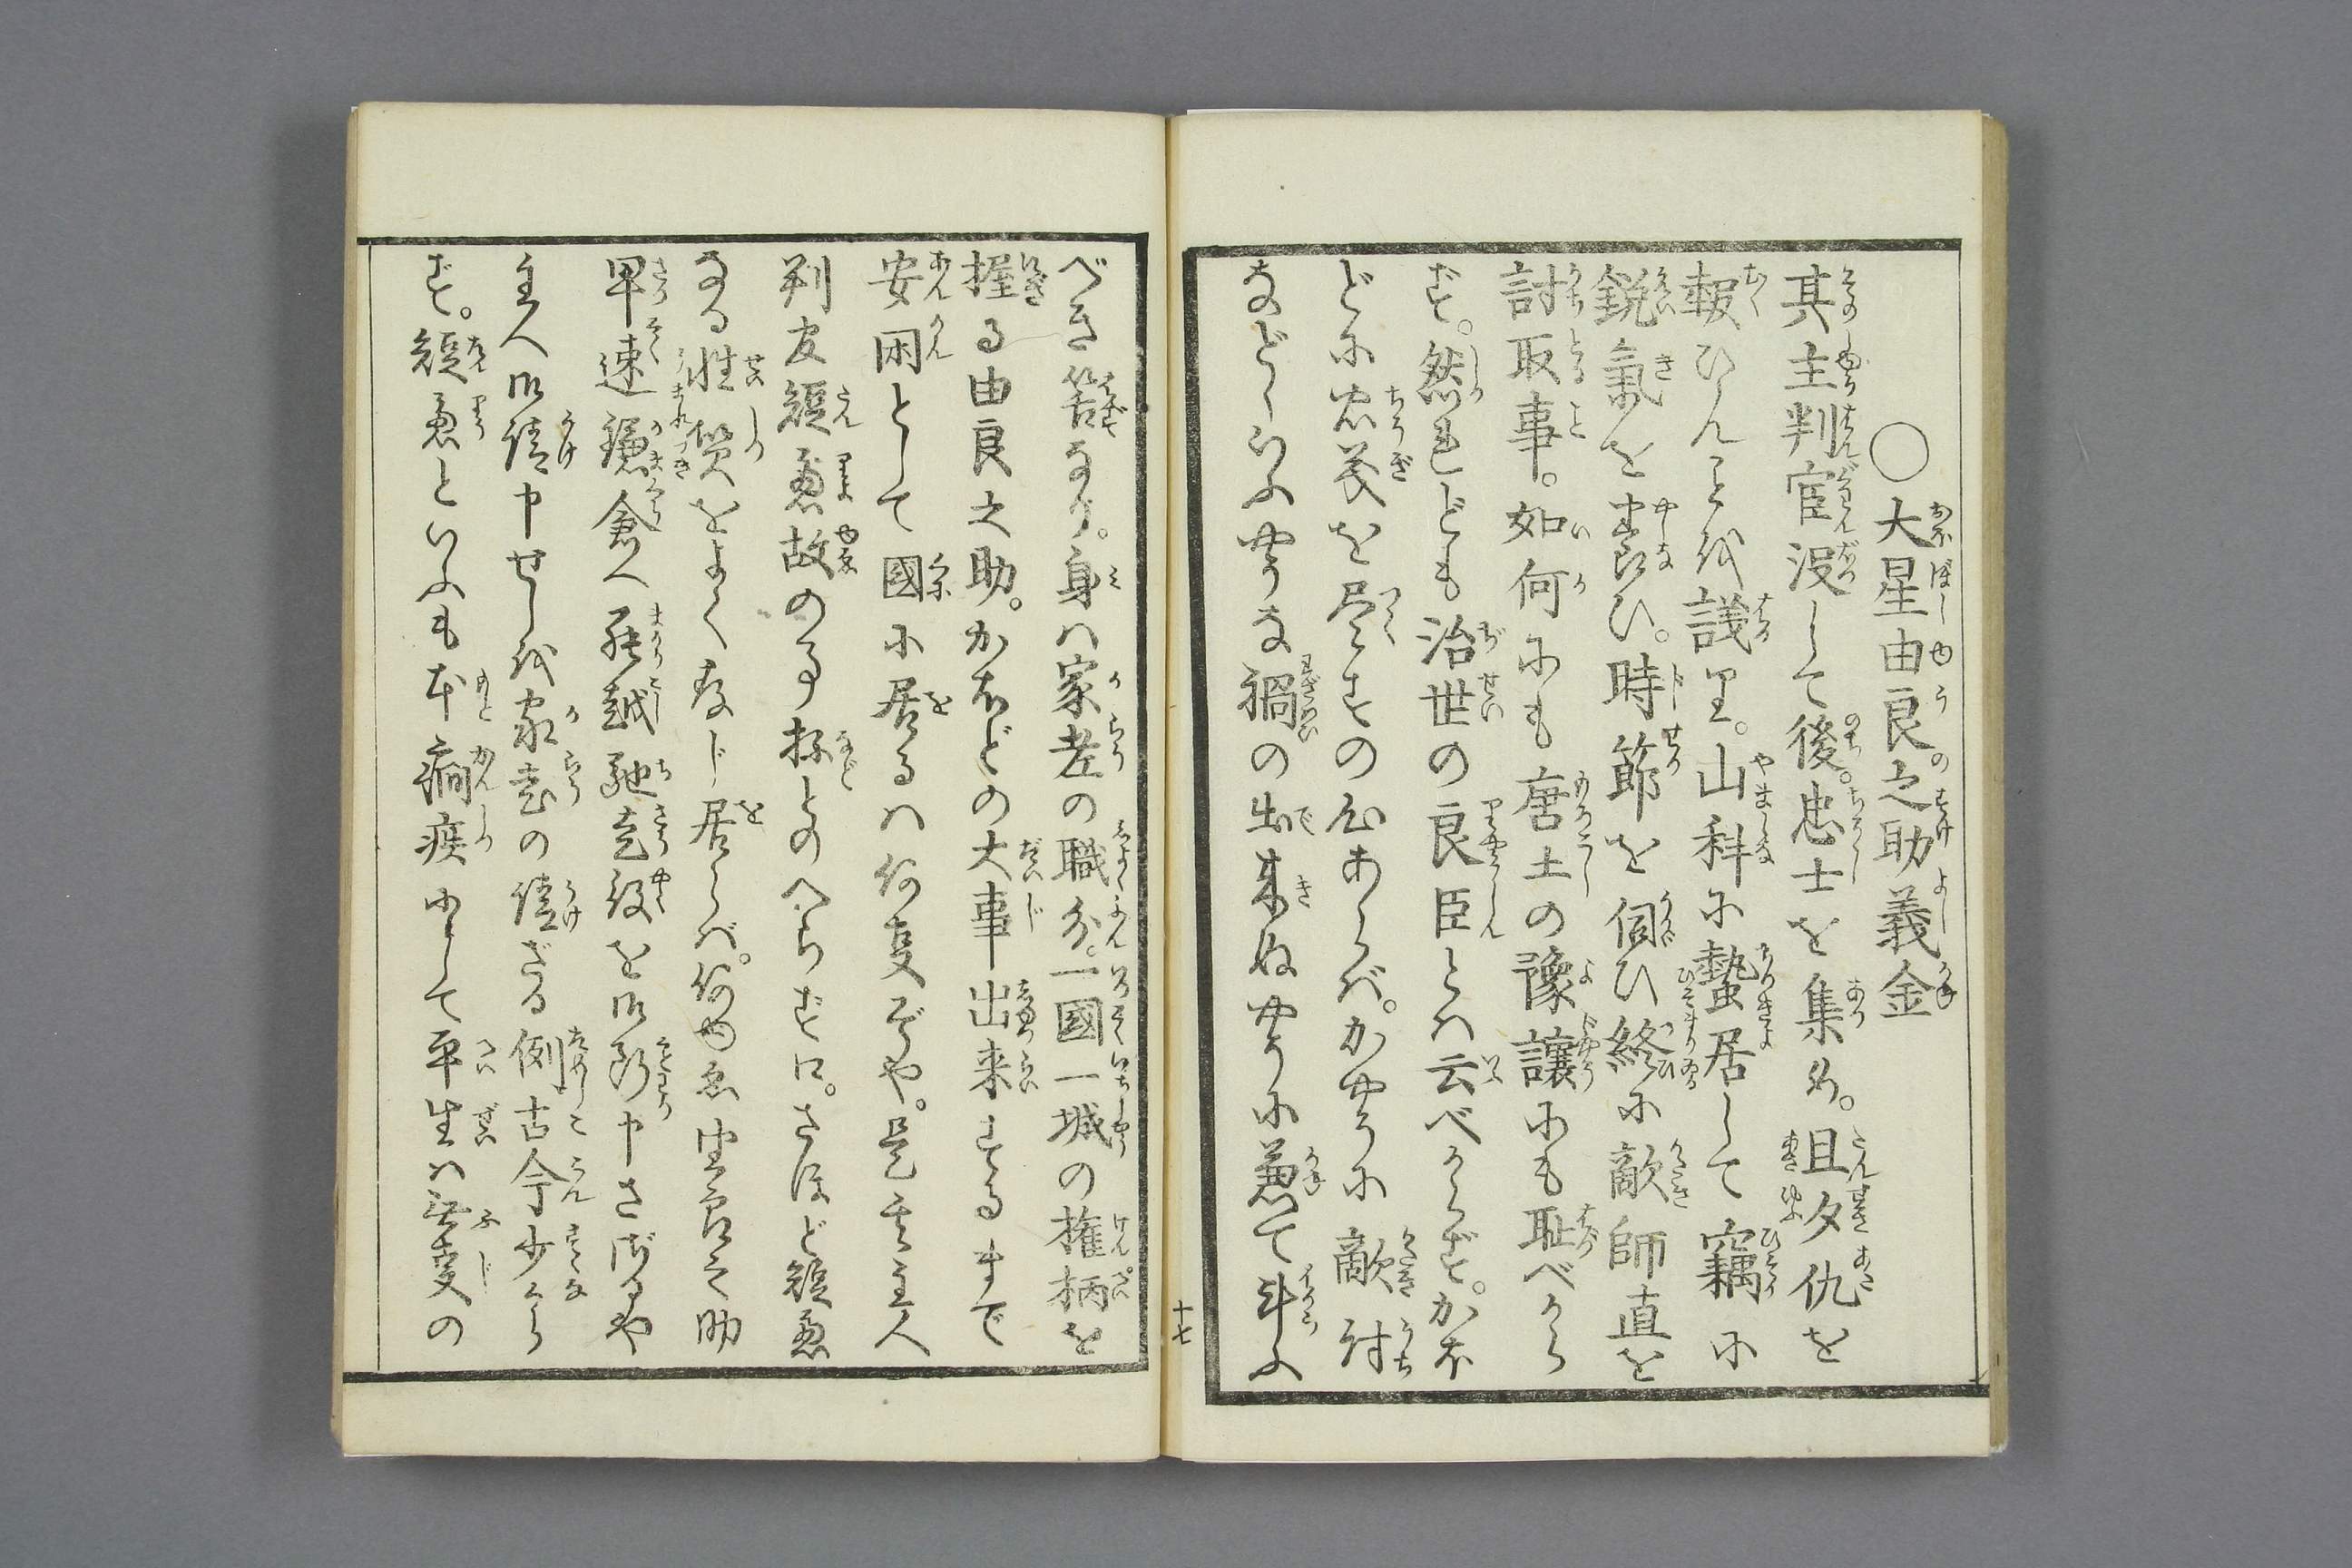 ○大星由良之助義金
其主判官没して後。忠士を集め。旦夕仇を
報ひんことを議り。山科に蟄居して竊に
鋭氣を養ひ。時節を伺ひ終に敵師直を
討取事。如何にも唐土の豫讓にも恥べから
ず。然れども治世の良臣とは云べからず。かほ
どに忠義を尽すの心あらば。かやうに敵討
などゝいふやうな禍の出来ぬやうに兼て斗ふ
十七
べき筈なり。身は家老の職分。一國一城の権柄を
握る由良之助。かほどの大事出来するまで
安閑として國に居るは何事ぞや。是其主人
判官短慮故の事抔とのへらず口。さほど短慮
なる性質をよく存じ居らば。何ゆゑ由良之助
早速鎌倉へ罷越馳走役を御断申さざるや
主人御請申せしを家老の請ざる例古今少から
ず。短慮といふも本癇疾にして平生は無事の